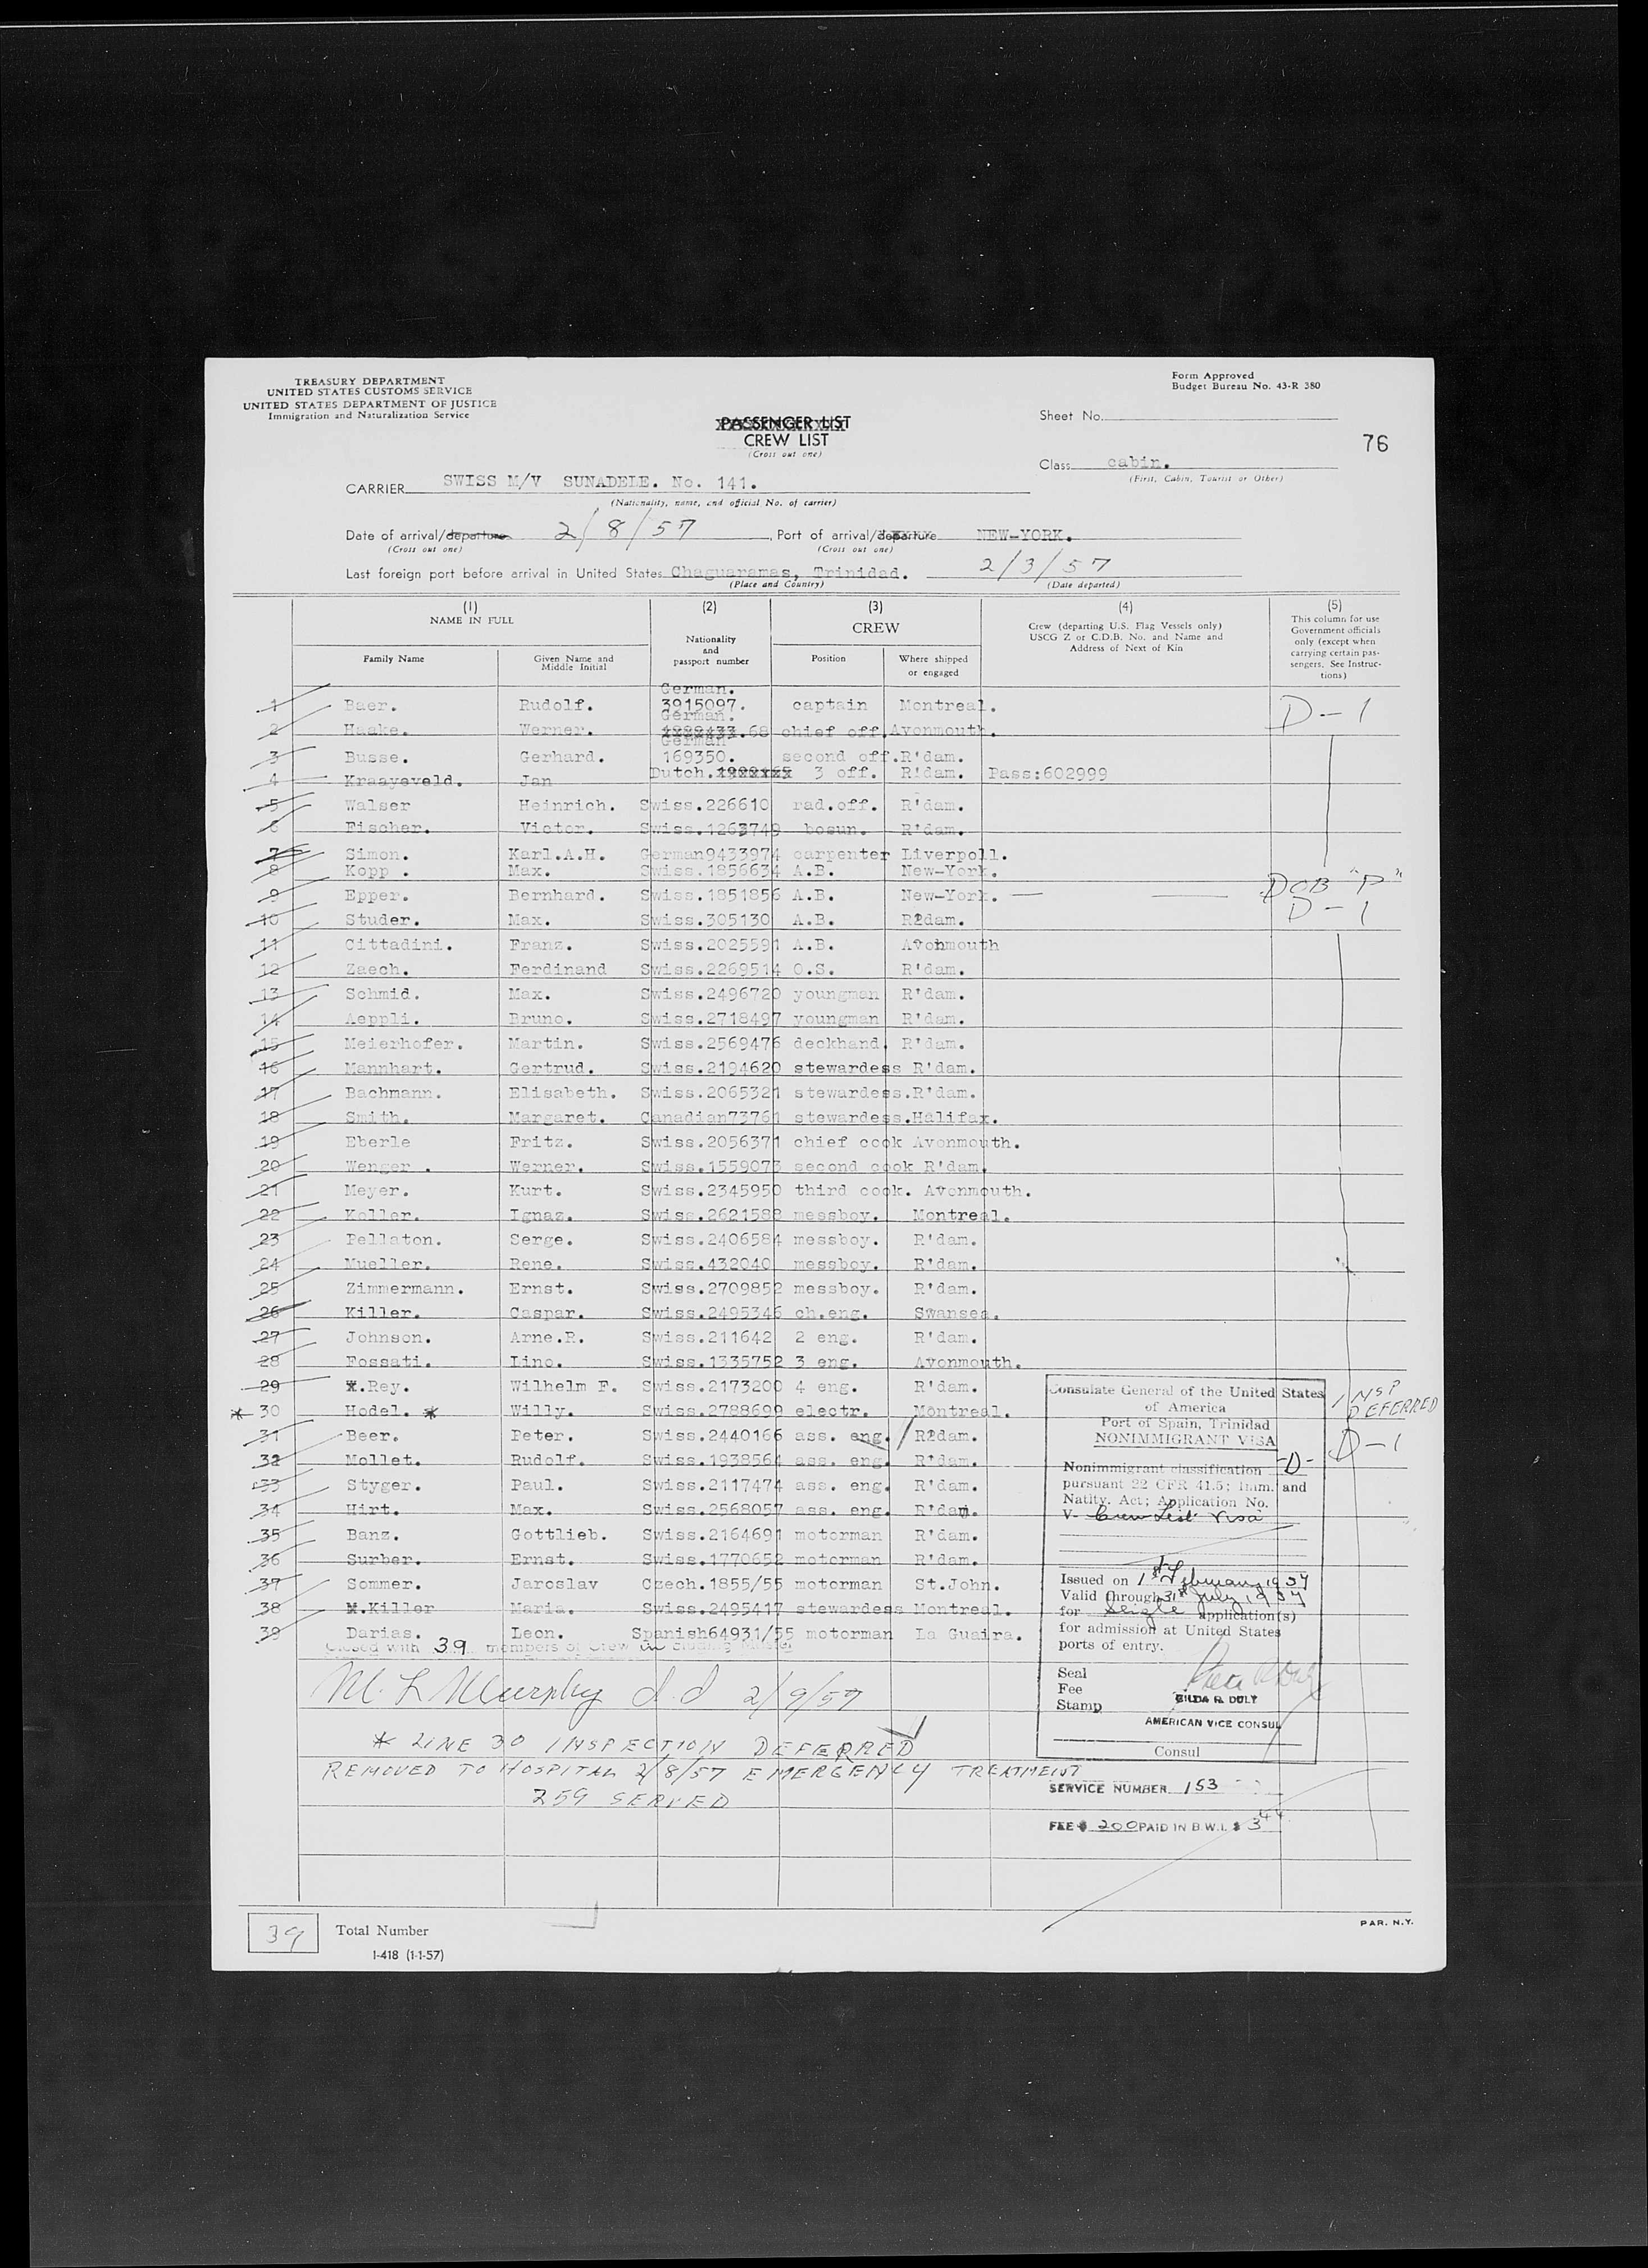 TREASURY DEPARTMENT
UNITED STATES CUSTOMS SERVICE
UNITED STATES DEPARTMENT OF JUSTICE
Immigration and Naturalization Service
Form Approved
Budget Bureau No. 43-R 380
PASSENGER LIST
CREW LIST
(Cross out one)
Sheet No.
76
Class cabin.
(First, Cabin, Tourist or Other)
CARRIER SWISS M/V SUNADELE. No. 141.
(Nationality, name, and official No. of carrier)
Date of arrival/departure 2/8/57, Port of arrival/departure NEW-YORK.
(Cross out one) (Cross out one)
Last foreign port before arrival in United States Chaguaramas, Trinidad. 2/3/57
(Place and Country) (Date departed)
(1) (2) (3) (4) (5)
NAME IN FULL
Family Name
Given Name and Middle Initial
Nationality and passport number
CREW
Position
Where shipped or engaged
Crew (departing U.S. Flag Vessels only)
USCG Z or C.D.B. No. and Name and
Address of Next of Kin
This column for use
Government officials
only (except when
carrying certain pas-
sengers. See Instruc-
tions)
1 Baer. Rudolf. German. 3915097. captain Montreal. D-1
2 Haake. Werner. German. .68 chief off. Avonmouth.
3 Busse. Gerhard. German 169350. second off. R'dam.
4 Kraayeveld. Jan Dutch. 3 off. R'dam. Pass:602999
5 Walser Heinrich. Swiss.226610 rad.off. R'dam.
6 Fischer. Victor. Swiss.1263749 bosun. R'dam.
7 Simon. Karl.A.H. German9433974 carpenter Liverpoll.
8 Kopp . Max. Swiss.1856634 A.B. New-York.
9 Epper. Bernhard. Swiss.1851856 A.B. New-York. — — DCB "P"
10 Studer. Max. Swiss.305130 A.B. R'dam. D-1
11 Cittadini. Franz. Swiss.2025591 A.B. Avonmouth
12 Zaech. Ferdinand Swiss.2269514 O.S. R'dam.
13 Schmid. Max. Swiss.2496720 youngman R'dam.
14 Aeppli. Bruno. Swiss.2718497 youngman R'dam.
15 Meierhofer. Martin. Swiss.2569476 deckhand. R'dam.
16 Mannhart. Gertrud. Swiss.2194620 stewardess R'dam.
17 Bachmann. Elisabeth. Swiss.2065321 stewardess.R'dam.
18 Smith. Margaret. Canadian73761 stewardess.Halifax.
19 Eberle Fritz. Swiss.2056371 chief cook Avonmouth.
20 Wenger . Werner. Swiss.1559073 second cook R'dam.
21 Meyer. Kurt. Swiss.2345950 third cook. Avonmouth.
22 Keller. Ignaz. Swiss.2621588 messboy. Montreal.
23 Pellaton. Serge. Swiss.2406584 messboy. R'dam.
24 Mueller. Rene. Swiss.432040 messboy. R'dam.
25 Zimmermann. Ernst. Swiss.2709852 messboy. R'dam.
26 Killer. Caspar. Swiss.2495346 ch.eng. Swansea.
27 Johnson. Arne.R. Swiss.211642 2 eng. R'dam.
28 Fossati. Lino. Swiss.1335752 3 eng. Avonmouth.
29 .Rey. Wilhelm F. Swiss.2173200 4 eng. R'dam.
* 30 Hodel. * Willy. Swiss.2788699 electr. Montreal. INSP DEFERRED
31 Beer. Peter. Swiss.2440166 ass. eng. R'dam. D-1
32 Mollet. Rudolf. Swiss.1938564 ass. eng. R'dam.
33 Styger. Paul. Swiss.2117474 ass. eng. R'dam.
34 Hirt. Max. Swiss.2568057 ass. eng. R'dam.
35 Banz. Gottlieb. Swiss.2164691 motorman R'dam.
36 Surber. Ernst. Swiss.1770652 motorman R'dam.
37 Sommer. Jaroslav Czech.1855/55 motorman St.John.
38 M.Killer Maria. Swiss.2495417 stewardess Montreal.
39 Darias. Leon. Spanish64931/55 motorman La Guaira.
Closed with 39 members of Crew including Master
M. L Murphy 2/9/57
* LINE 30 INSPECTION DEFERRED
REMOVED TO HOSPITAL 2/8/57 EMERGENCY TREATMENT
259 SERVED
Consulate General of the United States
of America
Port of Spain, Trinidad
NONIMMIGRANT VISA
Nonimmigrant classification -D-
pursuant 22 CFR 41.5; Imm. and
Natity. Act; Application No.
V- Crew List Visa
Issued on 1st February 1957
Valid through 31st July 1957
for Single application(s)
for admission at United States
ports of entry.
Seal
Fee
Stamp
GILDA R. DULY
AMERICAN VICE CONSUL
Consul
SERVICE NUMBER 153
FEE $ 200 PAID IN B.W.I. $ 3.44
39 Total Number
I-418 (1-1-57)
PAR. N.Y.